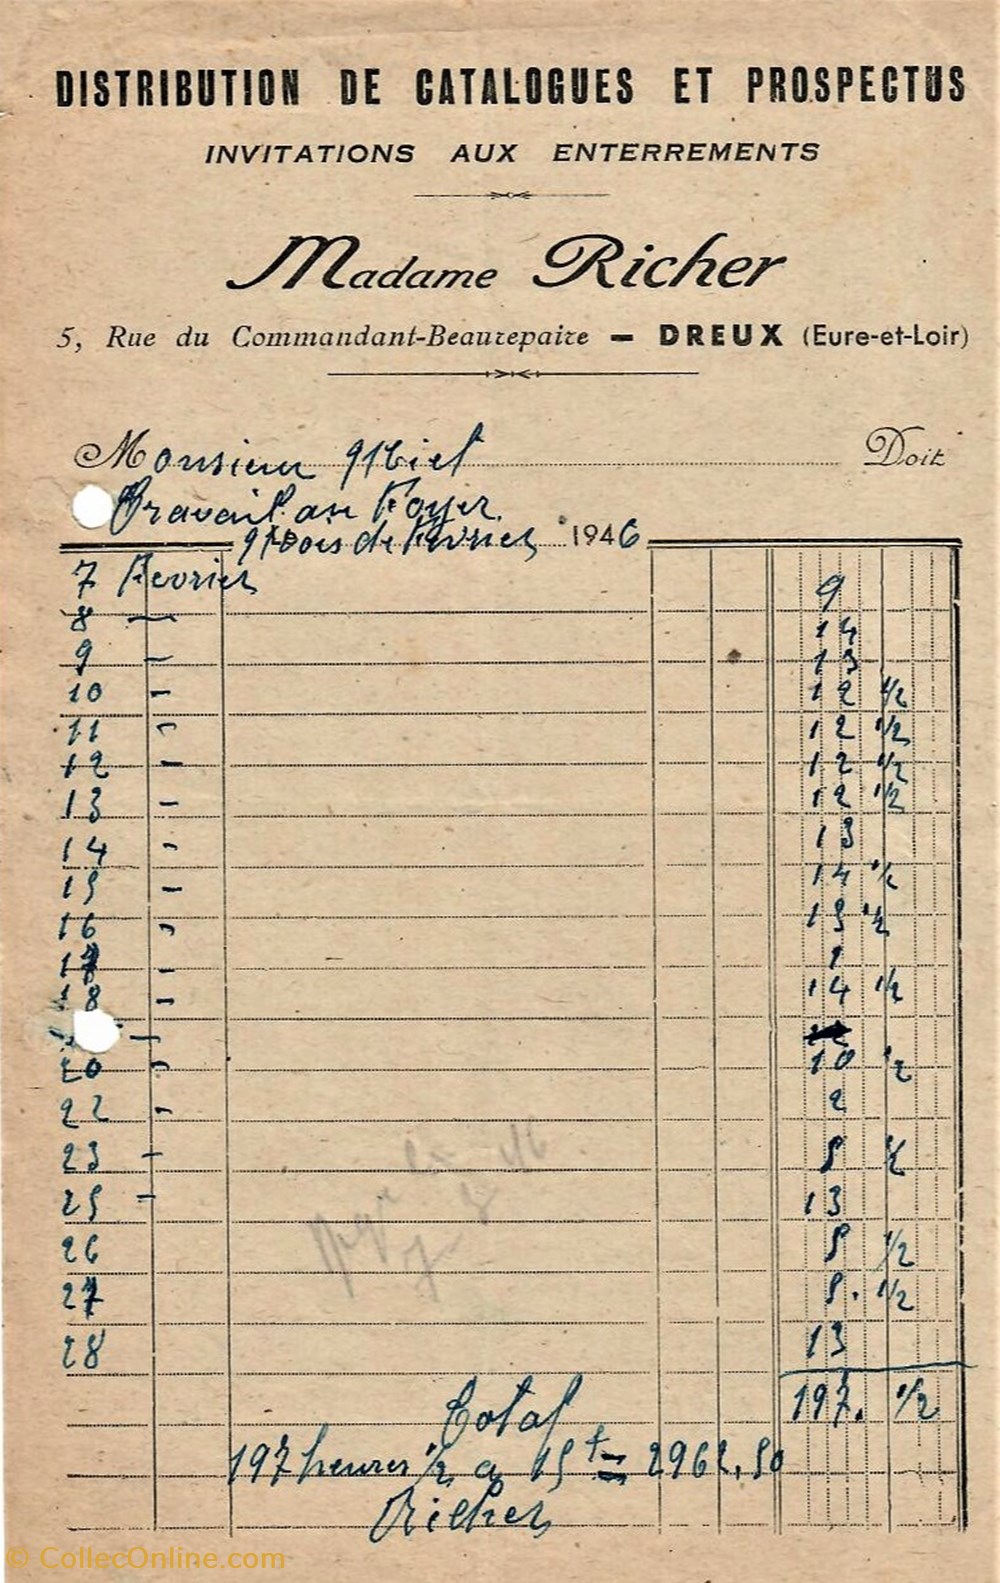 DISTRIBUTION DE CATALOGUES ET PROSPECTUS
INVITATIONS AUX ENTERREMENTS
Madame Richer
5, Rue du Commandant-Beaurepaire - DREUX (Eure-et-Loir)
Monsieur Doit
Travail au Foyer
Mois de Fevrier 1946
7 Fevrier 9
8 — 14
9 — 13
10 — 12 1/2
11 — 12 1/2
12 — 12 1/2
13 — 12 1/2
14 — 13
15 — 14 1/2
16 — 15 1/2
17 — 1
18 — 14 1/2
—
20 — 10 1/2
22 — 2
23 — 5 1/2
25 — 13
26 5 1/2
27 5. 1/2
28 13
Total 197. 1/2
197 heures 1/2 a 15f = 2962,50
Richer
© CollecOnline.com